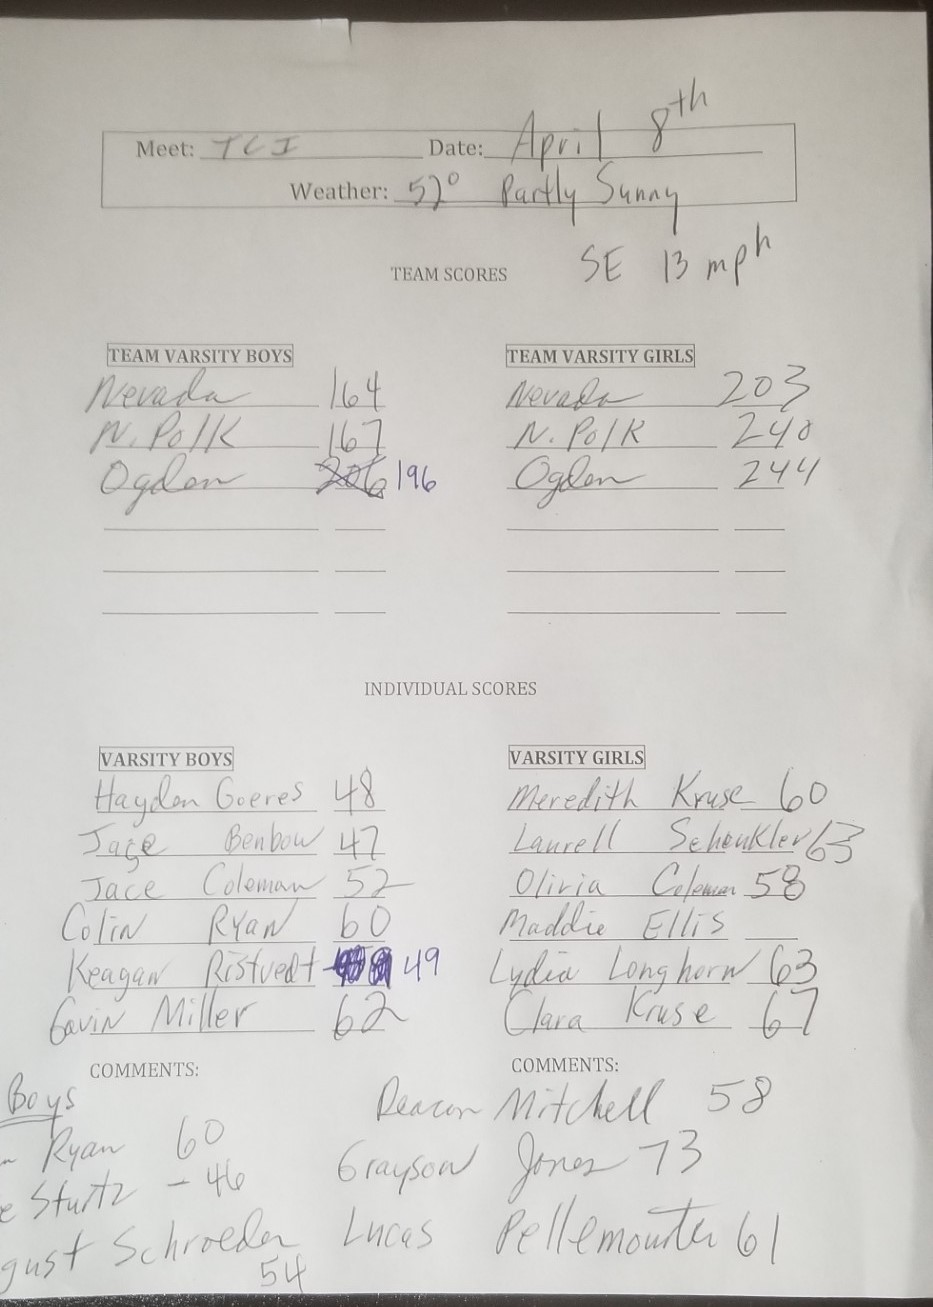 Meet: TCI Date: April 8th
Weather: 52° Partly Sunny
SE 13 mph
TEAM SCORES
TEAM VARSITY BOYS
Nevada 164
N. Polk 167
Ogden 206 196
TEAM VARSITY GIRLS
Nevada 203
N. Polk 240
Ogden 244
INDIVIDUAL SCORES
VARSITY BOYS
Hayden Goeres 48
Jage Benbow 47
Jace Coleman 52
Colin Ryan 60
Keagan Ristvedt 49
Gavin Miller 62
COMMENTS:
VARSITY GIRLS
Meredith Kruse 60
Laurell Schenkler 63
Olivia Coleman 58
Maddie Ellis
Lydia Longhorn 63
Clara Kruse 67
COMMENTS:
Boys
Ryan 60
Sturtz - 46
gust Schroeder
54
Deacon Mitchell 58
Grayson Jones 73
Lucas Pellemounter 61